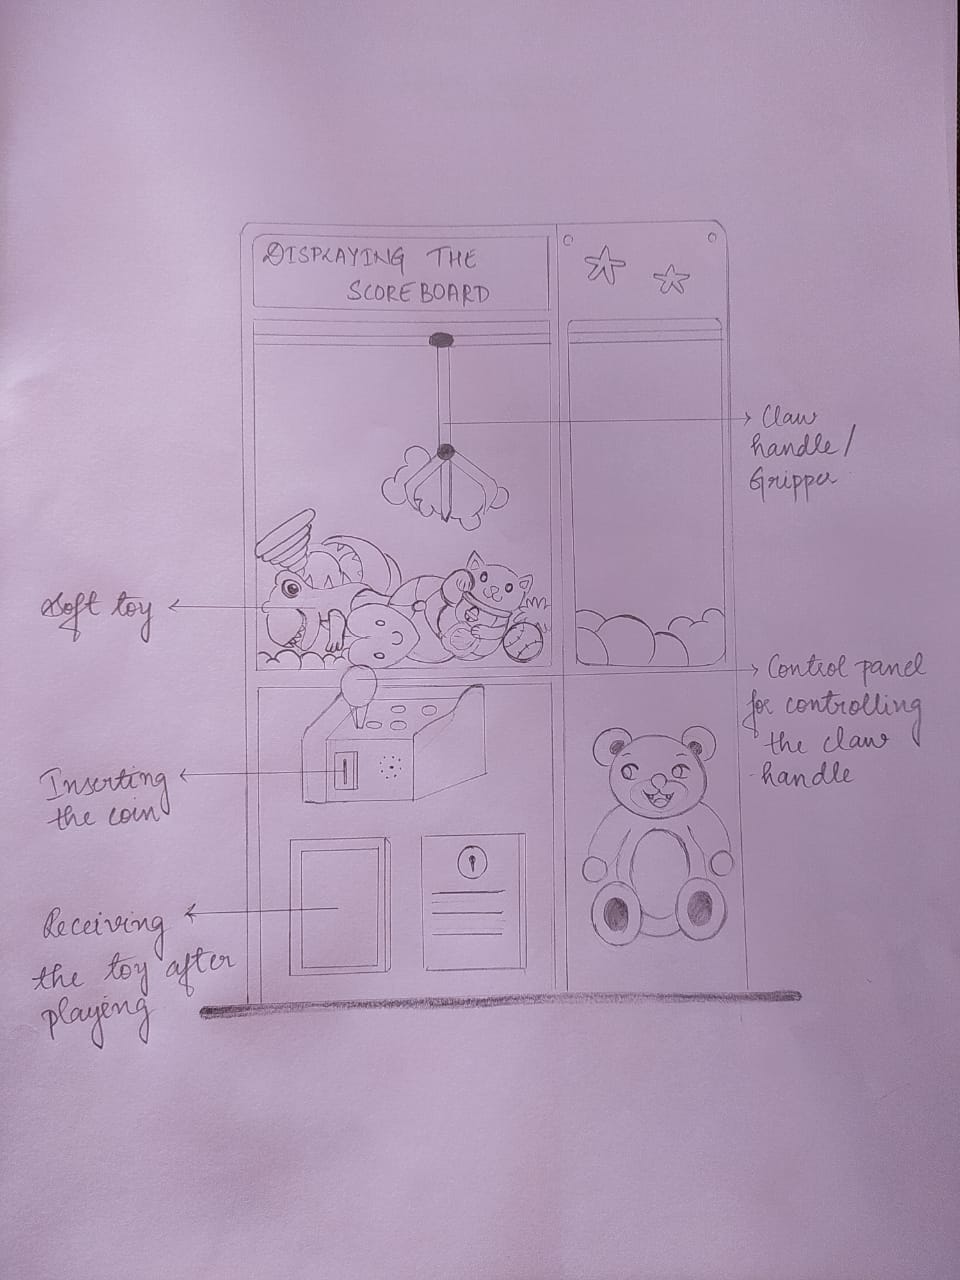 DISPLAYING THE
SCOREBOARD
Claw
handle/
Gripper
Soft toy
Control panel
for controlling
the claw
handle
Inserting
the coin
Receiving
the toy after
playing